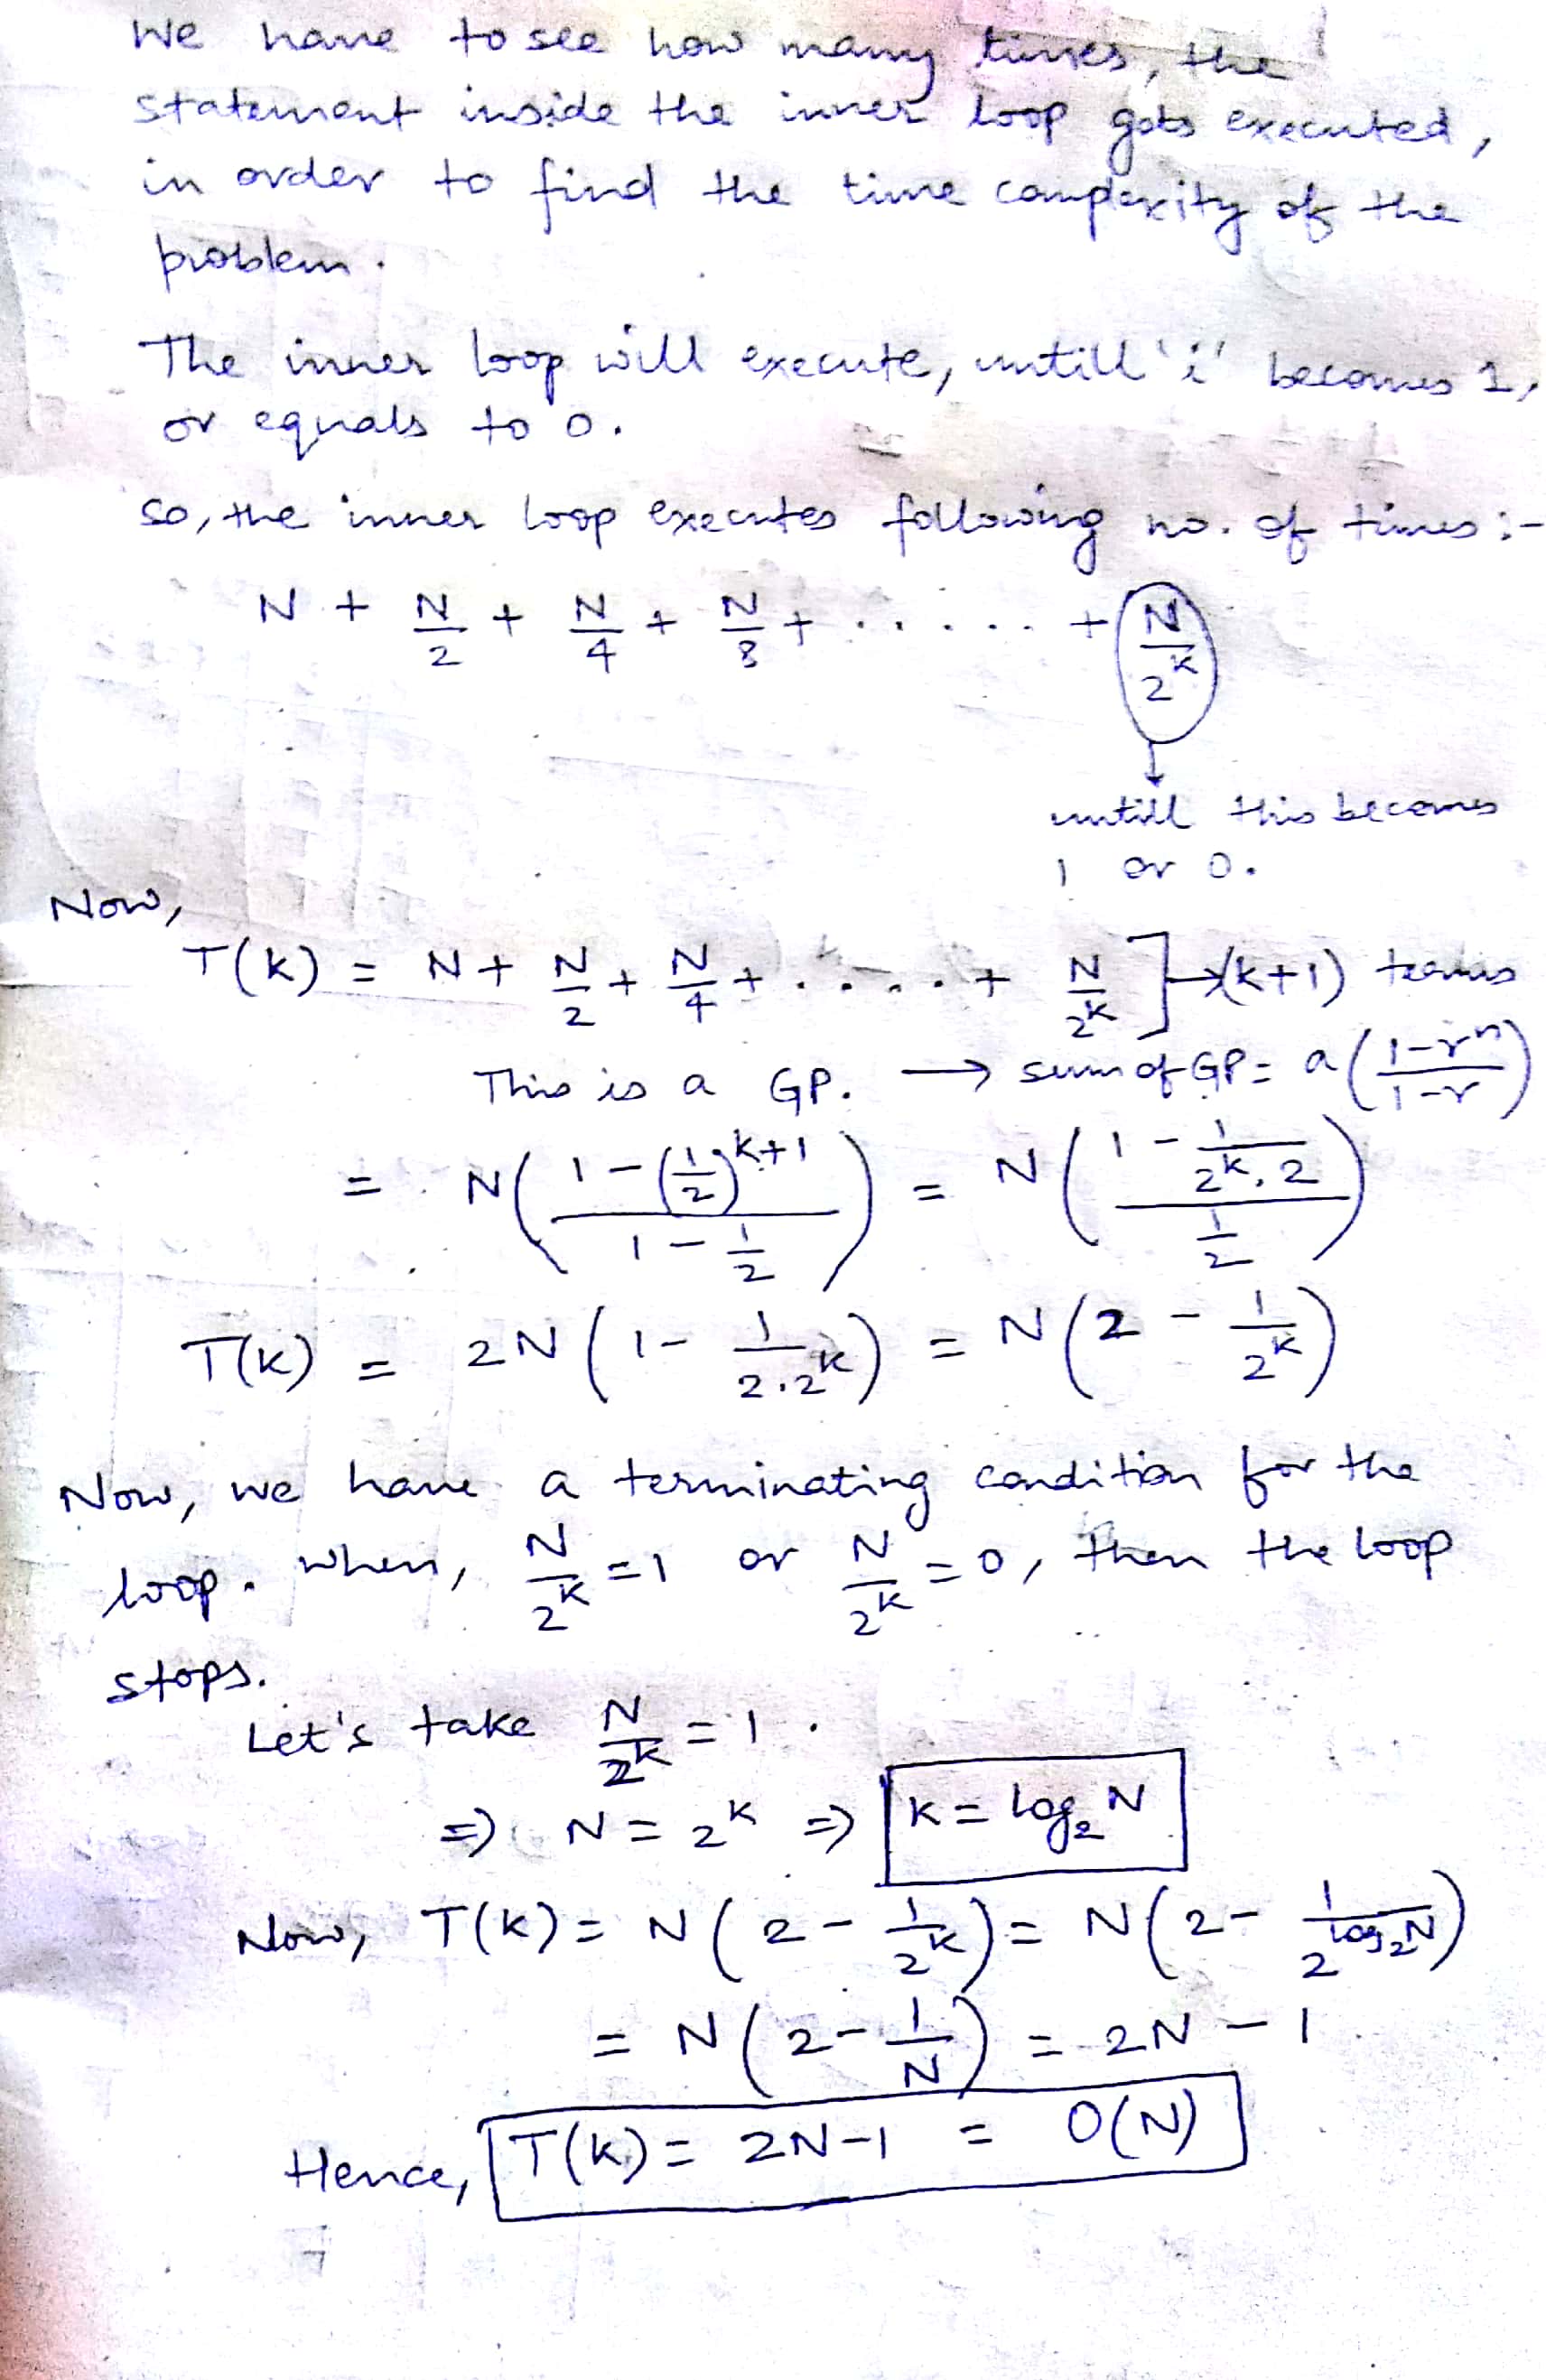 We have to see how many times, the
statement inside the inner loop gets executed,
in order to find the time complexity of the
problem.
The inner loop will execute, untill 'i' becomes 1,
or equals to 0.
so, the inner loop executes following no. of times :-
N + N/2 + N/4 + N/8 + ...... + N/2^k
untill this becomes
1 or 0.
Now,
T(k) = N + N/2 + N/4 + ...... + N/2^k ] → (k+1) terms
This is a GP. → sum of GP = a((1-r^n)/(1-r))
= N((1-(1/2)^(k+1))/(1-1/2)) = N((1-1/(2^k.2))/(1/2))
T(k) = 2N(1-1/(2.2^k)) = N(2-1/2^k)
Now, we have a terminating condition for the
loop. When, N/2^k = 1 or N/2^k = 0, then the loop
stops.
Let's take N/2^k = 1.
⇒ N = 2^k ⇒ k = log₂N
Now, T(k) = N(2-1/2^k) = N(2-1/2^(log₂N))
= N(2-1/N) = 2N-1
Hence, T(k) = 2N-1 = O(N)